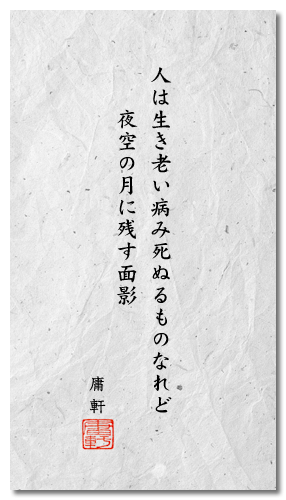 人は生き老い病み死ぬるものなれど
夜空の月に残す面影
庸軒